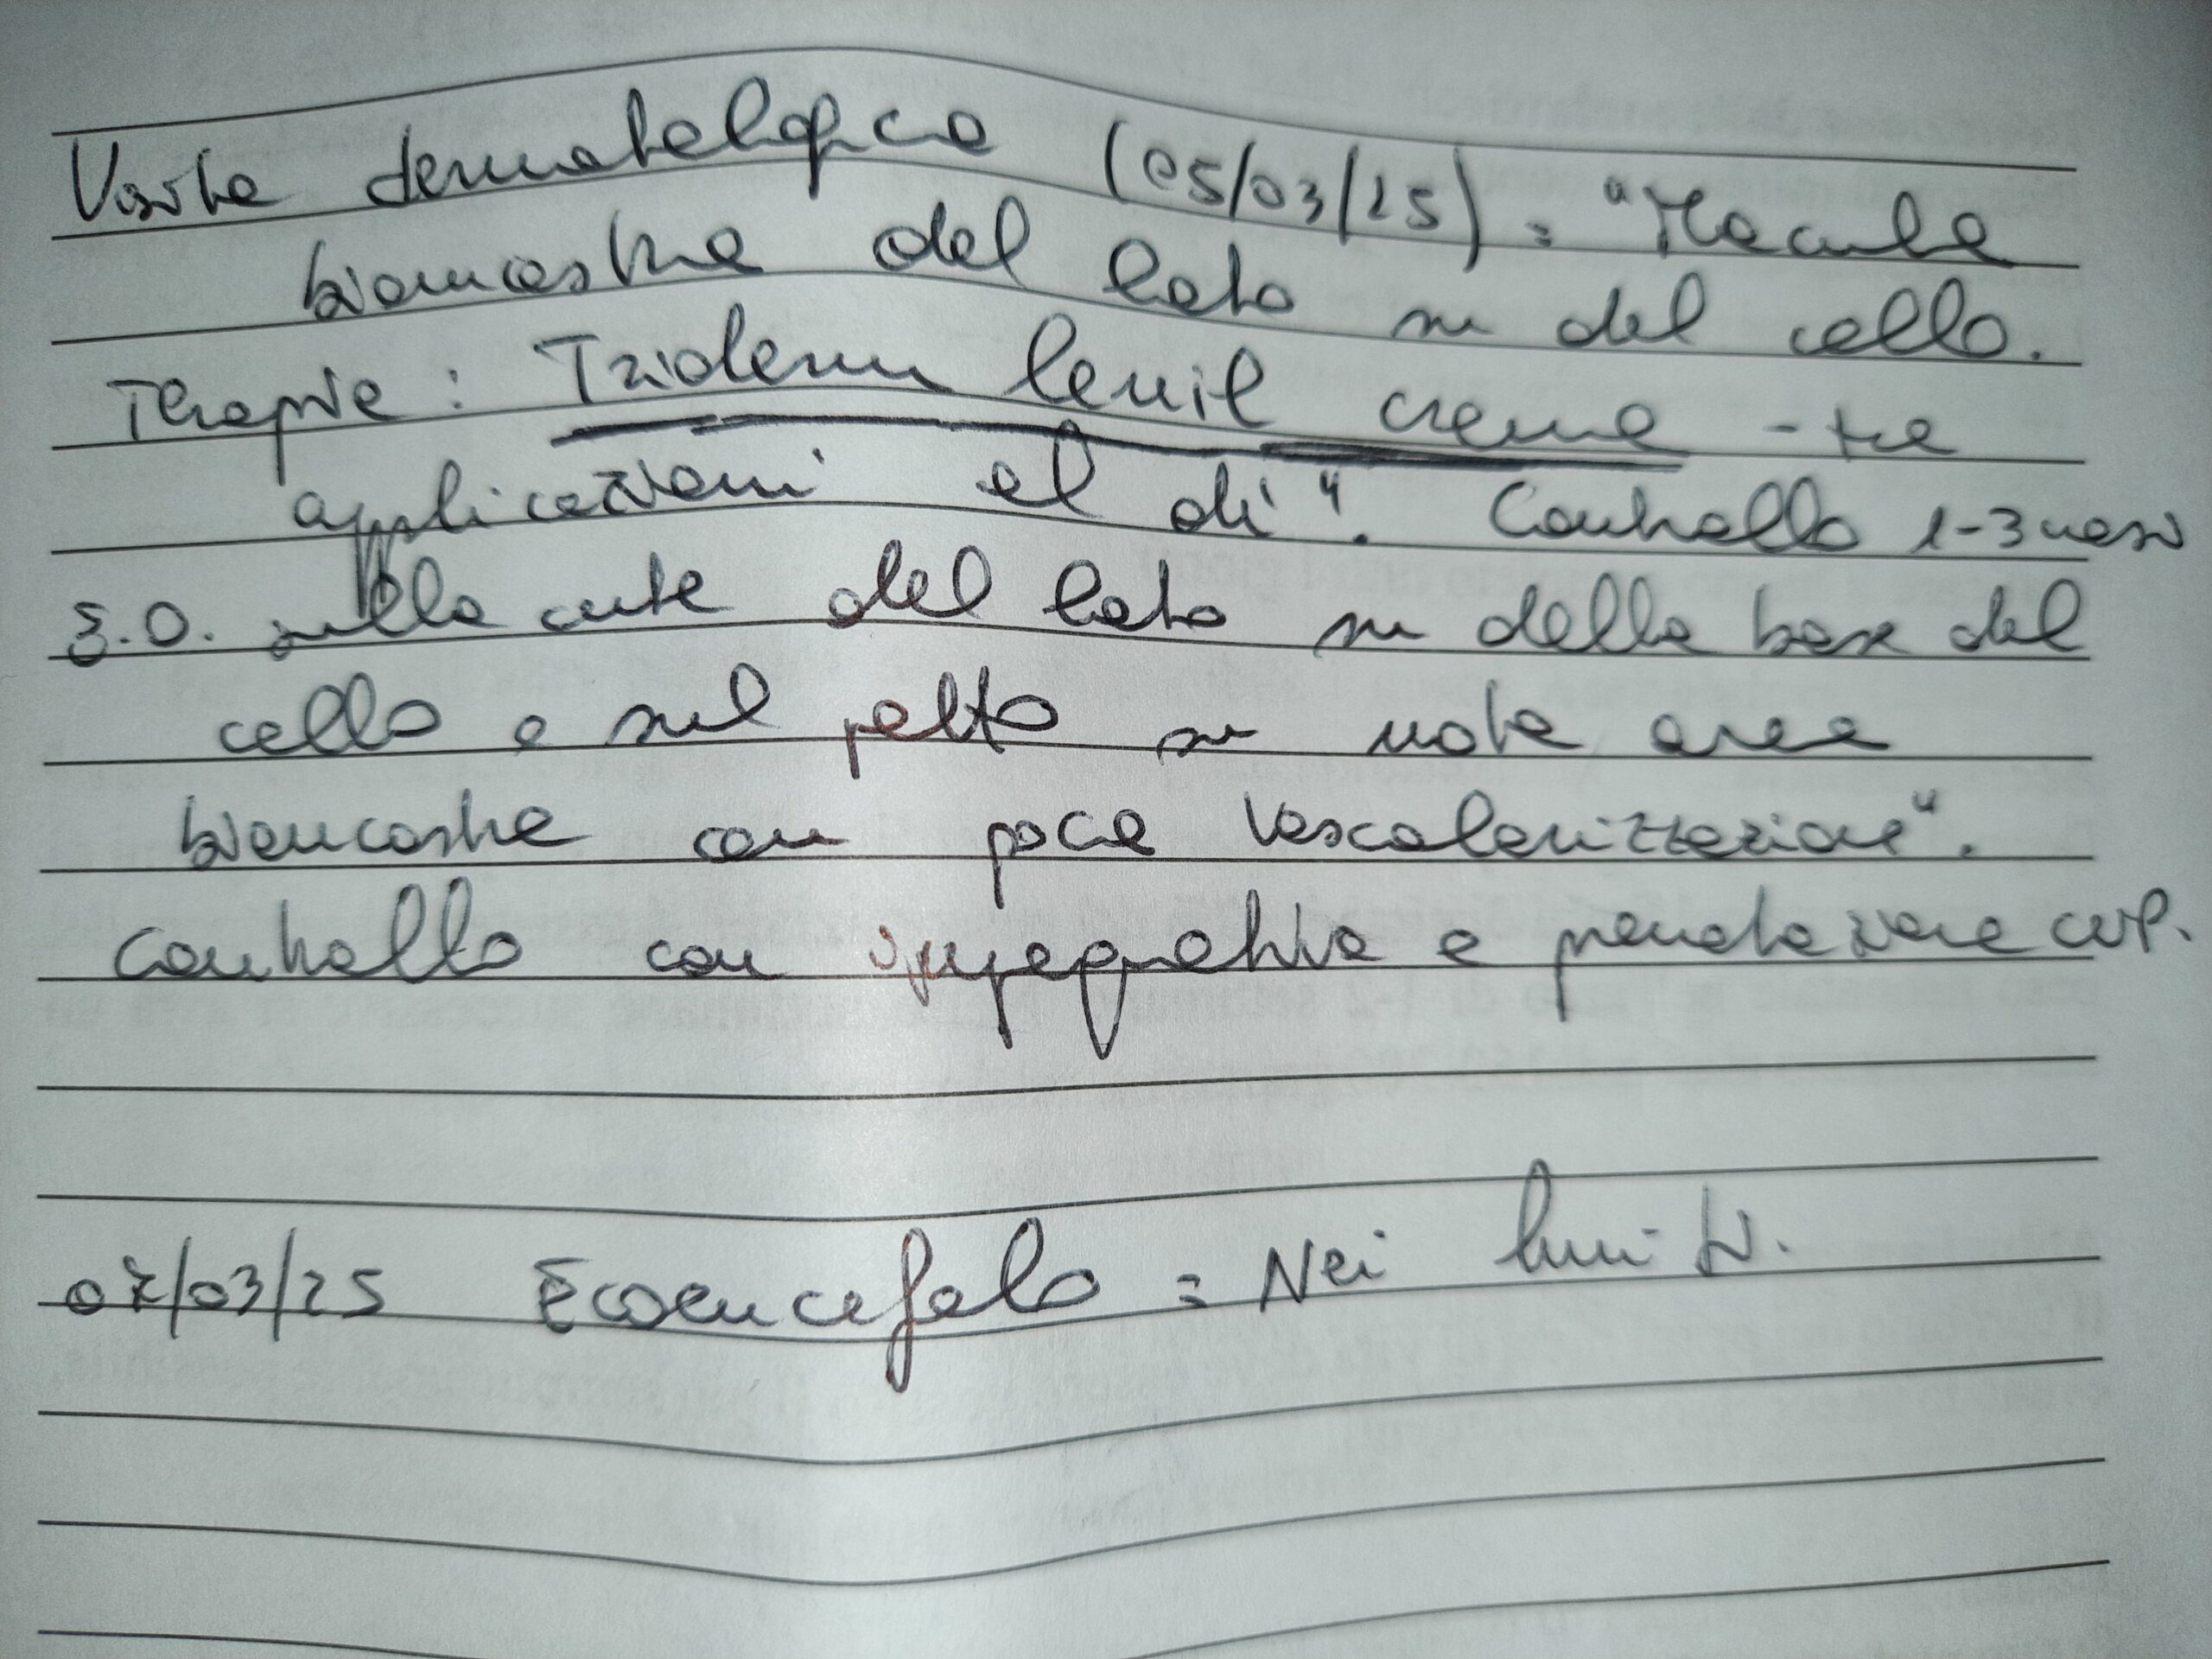 Visita dermatologica (05/03/25): "Macula
biancastra del lato sn del collo.
Terapia: Triderm lenil crema - tre
applicazioni al dì". Controllo 1-3 mesi
E.O. sulla cute del lato sn della base del
collo e sul petto sn nota area
biancastra con poca vascolarizzazione".
Controllo con impegnativa e prenotazione CUP.
07/03/25 Ecoencefalo: Nei limiti.